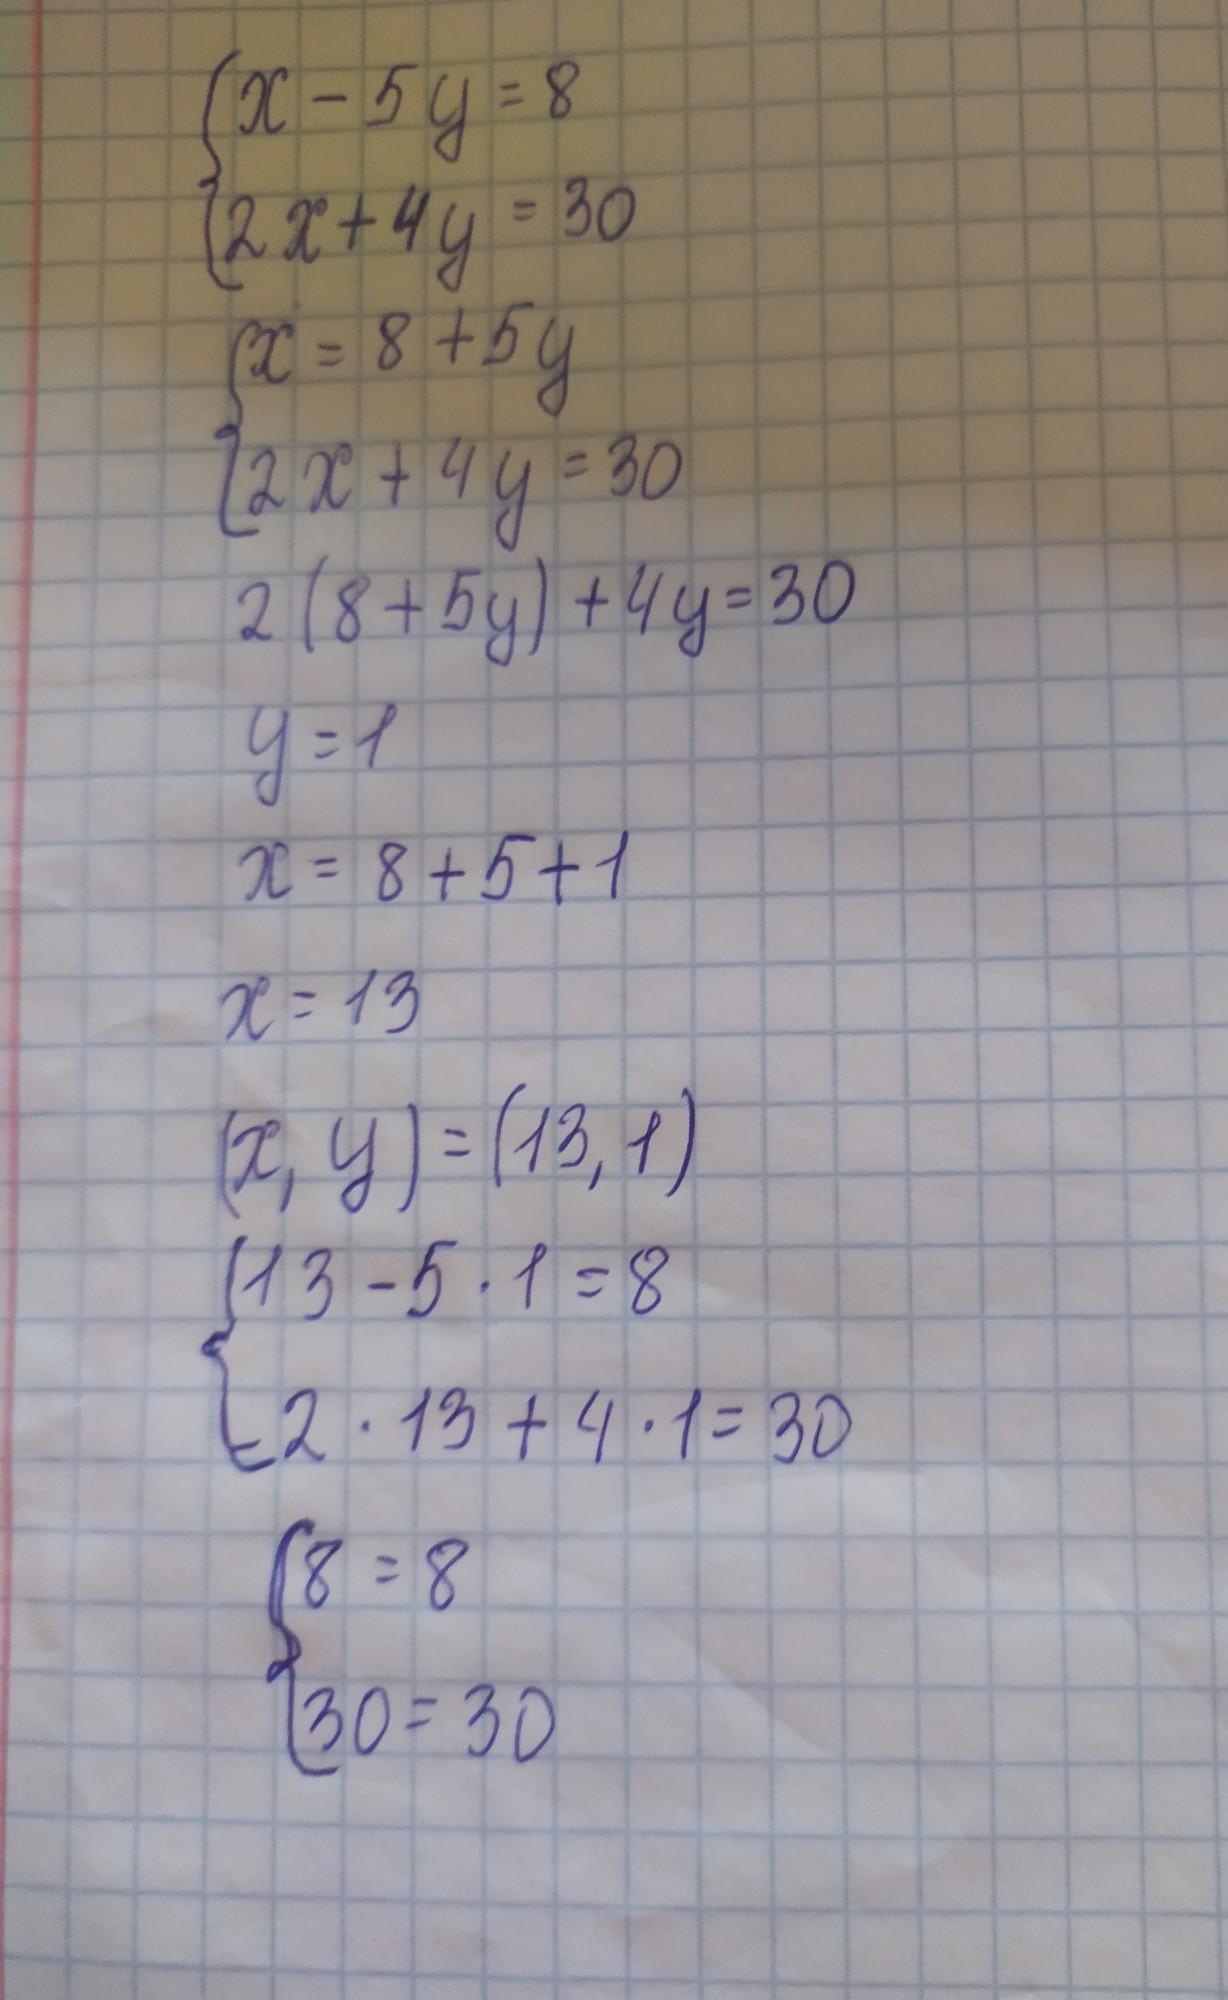 x - 5y = 8
2x + 4y = 30
x = 8 + 5y
2x + 4y = 30
2(8 + 5y) + 4y = 30
y = 1
x = 8 + 5 + 1
x = 13
(x, y) = (13, 1)
13 - 5 · 1 = 8
2 · 13 + 4 · 1 = 30
8 = 8
30 = 30